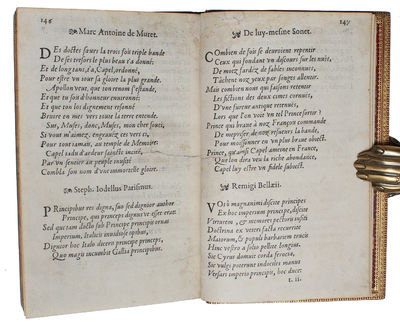 146
Marc Antoine de Muret.
DEs doctes sœurs la trois fois triple bande
De ses tresors le plus beau t'a donné:
Et de long tans, t'a, Capel, ordonné,
Pour estre vn iour sa gloire la plus grande.
Apollon veut, que ton renom s'estande,
Et que tu sois d'honneur environné:
Et que ton los dignement resonné
Bruire en mes vers toute la terre entende.
Sus, Muses, donc, Muses, mon cher souci,
Si vous m'aimez, engravéz ces vers ci,
Pour tout iamais, au temple de Memoire:
Capel rendu d'ardeur saincte incité,
Par vn sentier au peuple inusité
Combla son nom d'vne immortelle gloire.
Steph. Iodellus Parisinus.
PRincipibus res digna, suo sed dignior author
Principe, qui princeps dignus vt esset erat.
Sed quetam docto sub Principe principis ornas
Imperium, Italicis inuidiose opibus,
Dignior hoc Italo ducere principe princeps,
Quo magis incumbit Gallia principibus.
147
De luy-mesine Sonet.
COmbien de fois se deuroient repentir
Ceux qui fondant vn discours sur les nuës,
De motz fardéz de fables inconnues,
Tâchent noz yeux par songes allentir.
Mais combien nous qui faisons retentir
Les fictions des deux cimes cornues,
D'vne fureur antique retenues,
Lors que l'on voit vn tel Prince sortir?
Prince qui brave à noz François commande
De mepriser de noz resueurs la bande,
Pour moissonner vn plus braue obiect.
Prince, qu'ainsi Capel ameine en France,
Que lon dira veu la riche abondance,
Capel luy estre vn fidele subiect.
Remigi Bellæii.
VOtis magnanimi discite principes
Ex hoc imperium principe, discite
Virtutem, & memores pectoris insiti
Doctrina ex veteri facta recurrite
Maiorum, & populi barbariem trucis
Hinc vestro à solio pellite longius.
Sic Cyrus domuit corda ferocia,
Sic vulgi poterunt indociles manus
Versari imperio principis, hoc duce:
t. ii.